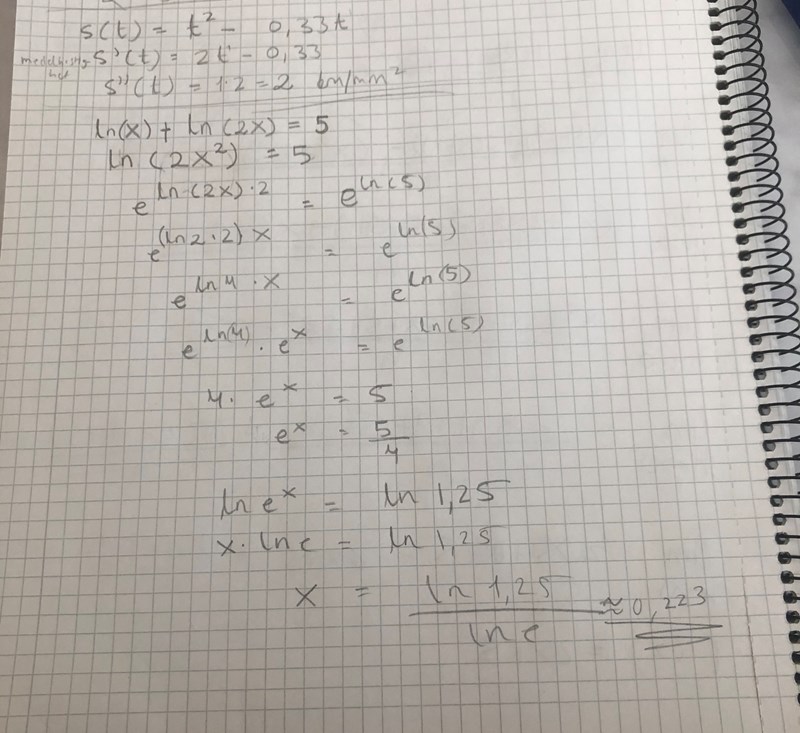 s(t) = t² - 0,33t
s'(t) = 2t - 0,33
s''(t) = 1·2 = 2 km/min²
ln(x) + ln(2x) = 5
ln(2x²) = 5
e^(ln(2x)·2) = e^(ln(5))
e^((ln2·2)x) = e^(ln(5))
e^(ln4·x) = e^(ln(5))
e^(ln(4)) · e^x = e^(ln(5))
4· e^x = 5
e^x = 5/4
ln e^x = ln 1,25
x· ln e = ln 1,25
x = ln 1,25 / ln e ≈ 0,223